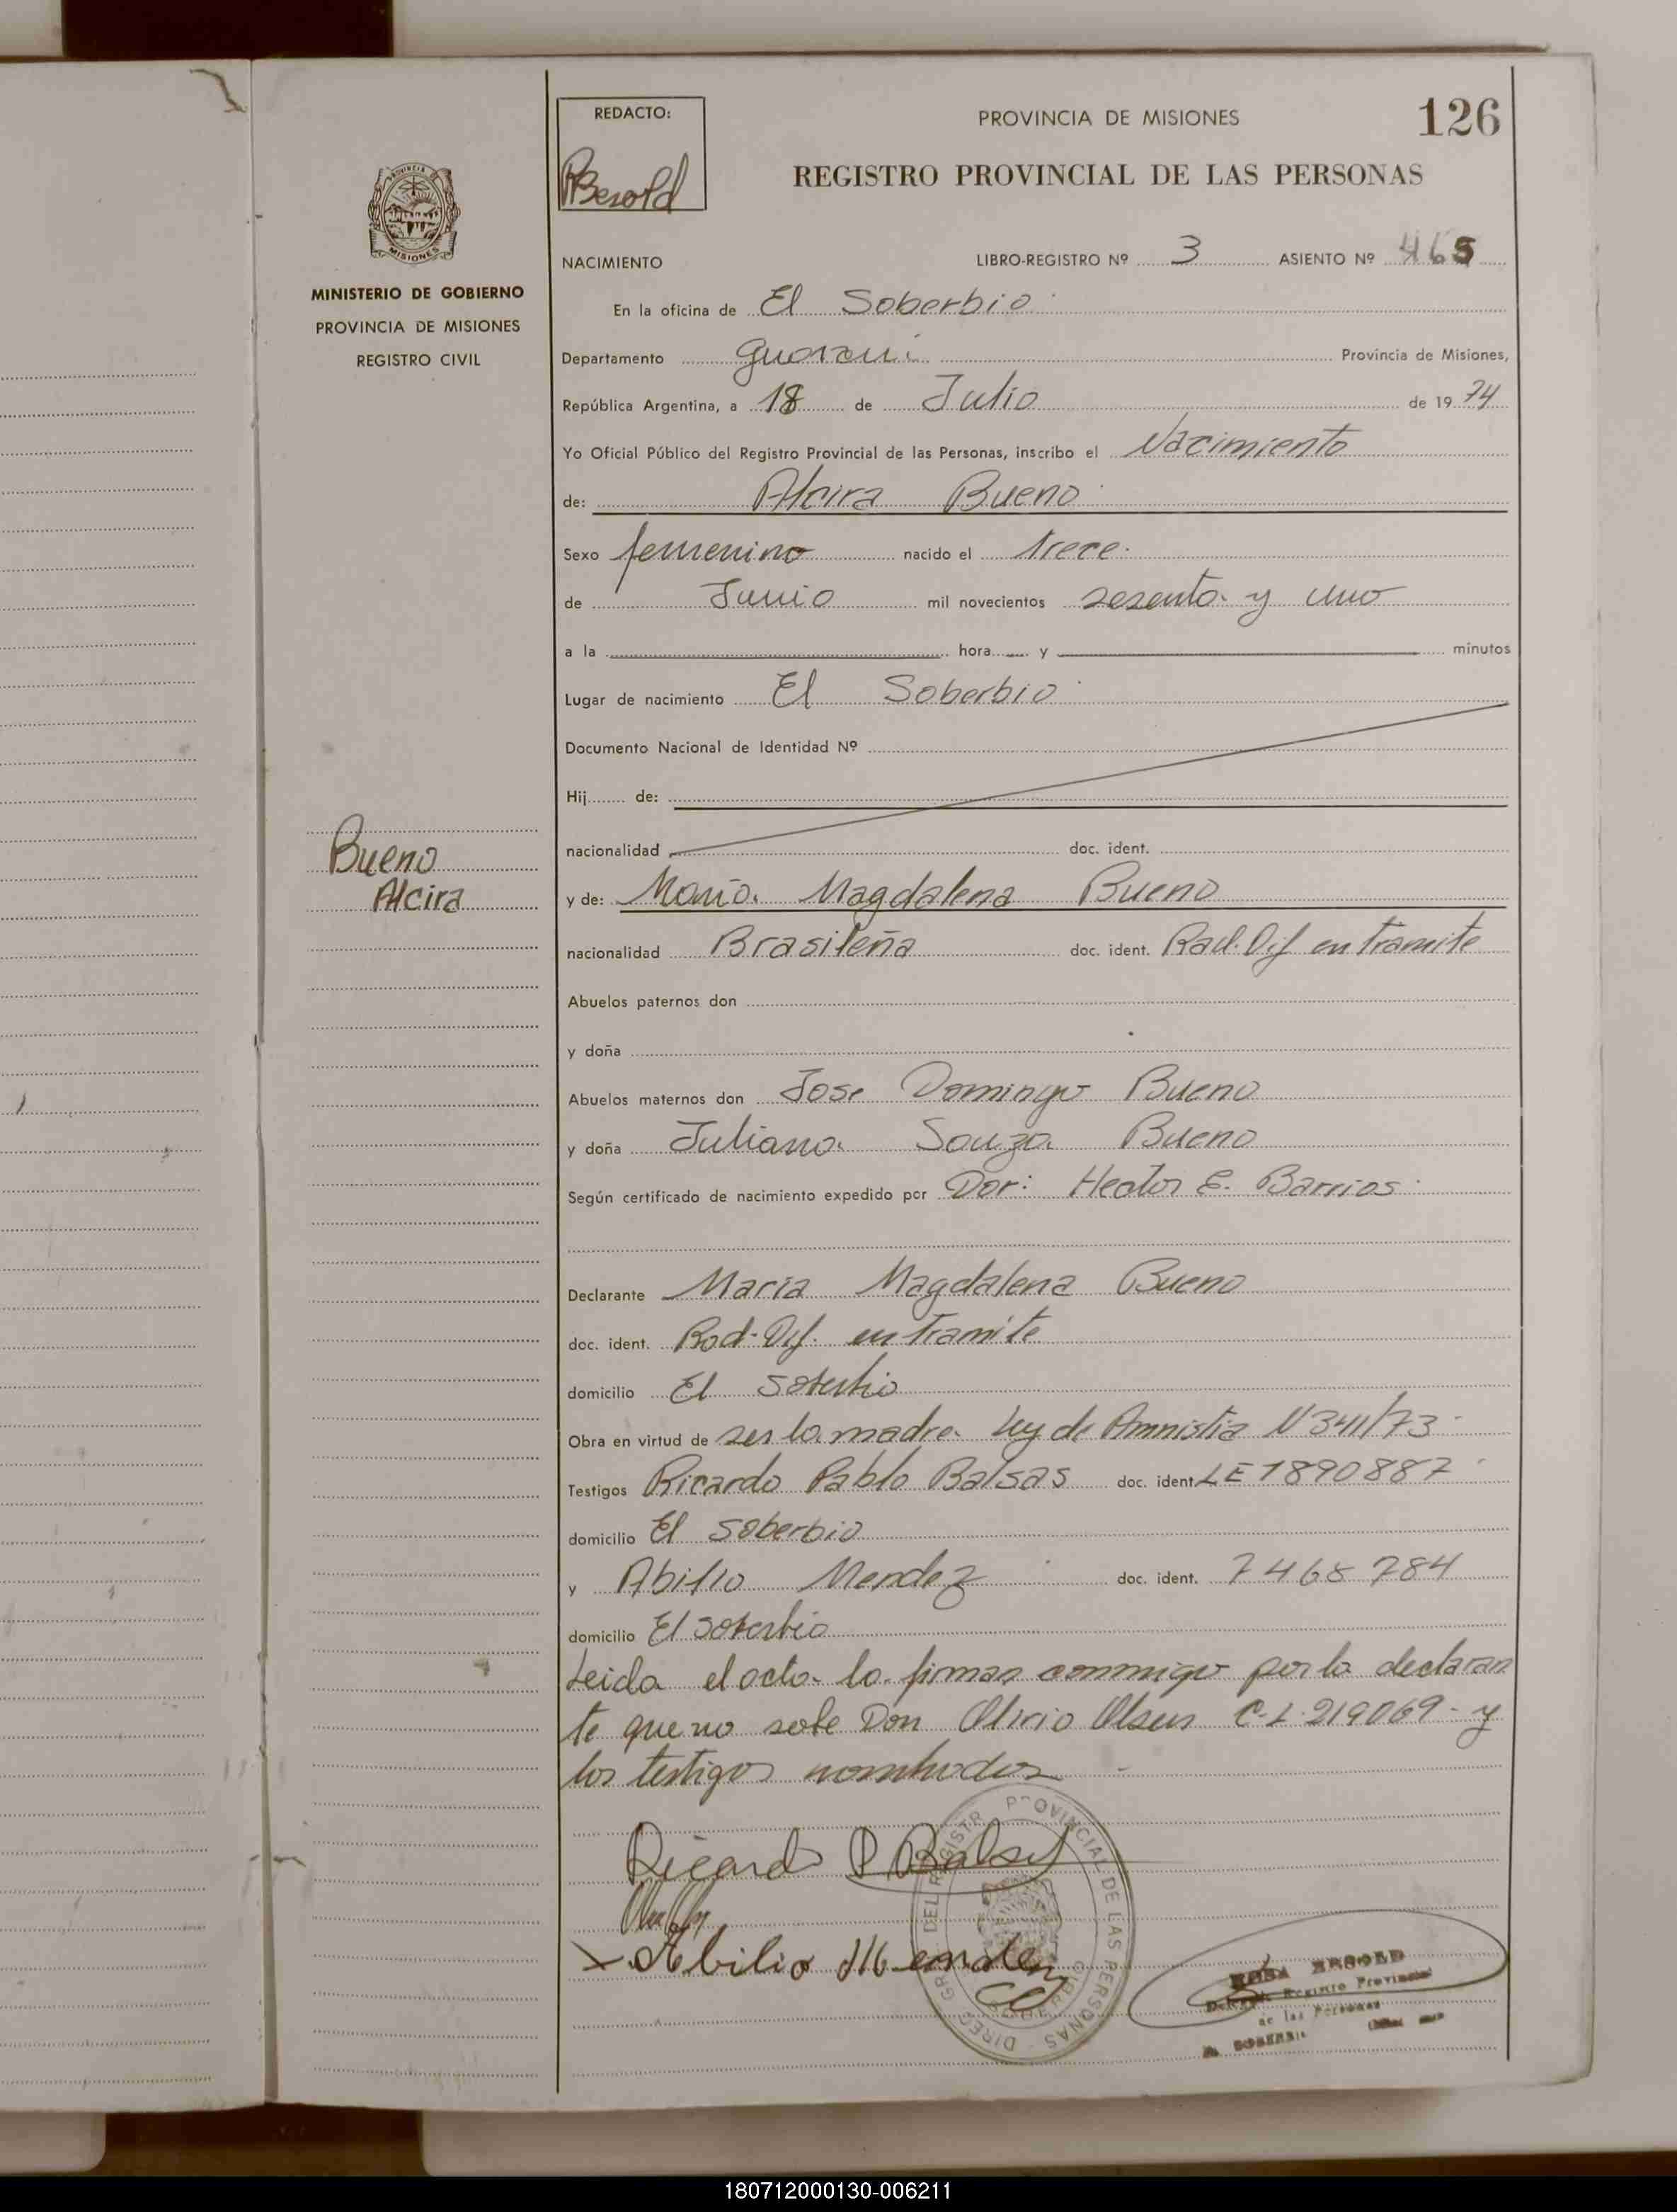 126
REDACTO:
PROVINCIA DE MISIONES
REGISTRO PROVINCIAL DE LAS PERSONAS
NACIMIENTO
LIBRO-REGISTRO Nº 3 ASIENTO Nº 465
MINISTERIO DE GOBIERNO
PROVINCIA DE MISIONES
REGISTRO CIVIL
En la oficina de El Soberbio
Departamento Guarani Provincia de Misiones,
República Argentina, a 18 de Julio de 1974
Yo Oficial Público del Registro Provincial de las Personas, inscribo el Nacimiento
de: Alcira Bueno
Sexo femenino nacido el trece
de Junio mil novecientos sesenta y uno
a la hora y minutos
Lugar de nacimiento El Soberbio
Documento Nacional de Identidad Nº
Hij de:
nacionalidad doc. ident.
Bueno
Alcira
y de: Maria Magdalena Bueno
nacionalidad Brasileña doc. ident. Rad. Dif en tramite
Abuelos paternos don
y doña
Abuelos maternos don Jose Domingo Bueno
y doña Juliana Souza Bueno
Según certificado de nacimiento expedido por Dor: Hector E. Barrios
Declarante Maria Magdalena Bueno
doc. ident. Rad. Dif. en Tramite
domicilio El Soberbio
Obra en virtud de ser la madre. Ley de Amnistia N 3411/73
Testigos Ricardo Pablo Balsas doc. ident. LE 7890887
domicilio El Soberbio
y Abilio Mendez doc. ident. 7468784
domicilio El Soberbio
Leida el acta la firman conmigo por la declaran
te que no sabe Don Olirio Olsen C.I. 219069 - y
los testigos nombrados
Ricardo P Balsas
Abilio Mendez
DIREC. GR. DEL REGISTR. PROVINCIAL DE LAS PERSONAS
180712000130-006211